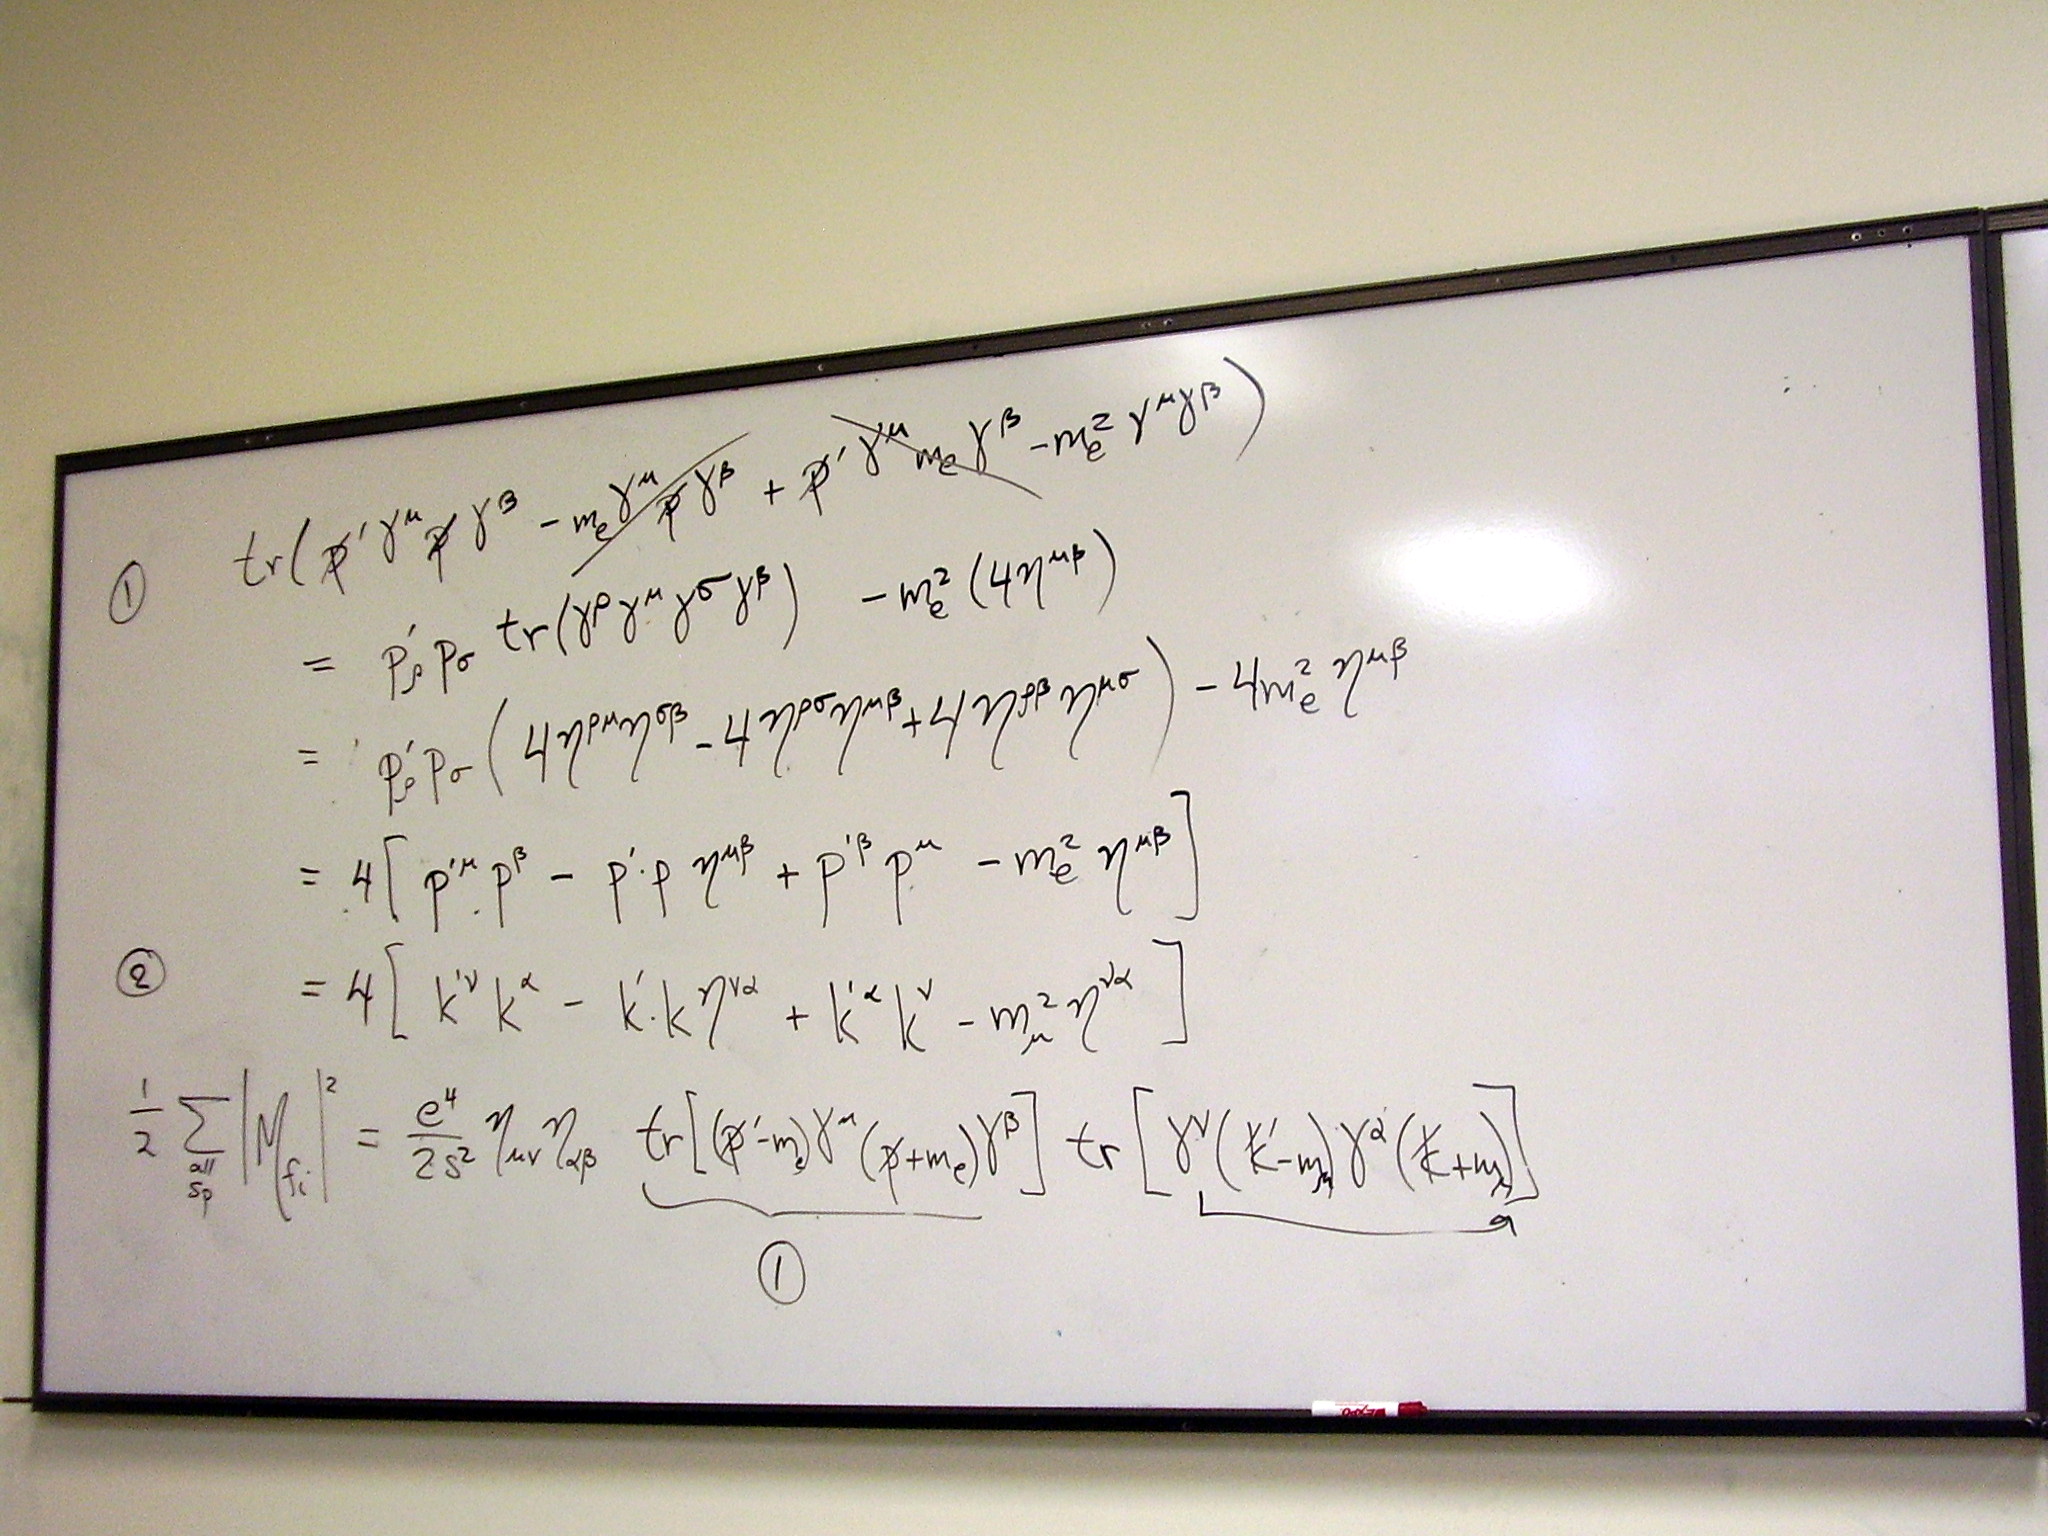 ① tr(p̸'γ^μ p̸ γ^β - m_e γ^μ p̸ γ^β + p̸' γ^μ m_e γ^β - m_e^2 γ^μ γ^β)
= p'_ρ p_σ tr(γ^ρ γ^μ γ^σ γ^β) - m_e^2 (4η^{μβ})
= p'_ρ p_σ (4η^{ρμ}η^{σβ} - 4η^{ρσ}η^{μβ} + 4η^{ρβ}η^{μσ}) - 4m_e^2 η^{μβ}
= 4[p'^μ p^β - p'·p η^{μβ} + p'^β p^μ - m_e^2 η^{μβ}]
② = 4[k'^ν k^α - k'·k η^{να} + k'^α k^ν - m_μ^2 η^{να}]
1/2 Σ_{all sp} |M_{fi}|^2 = e^4/2s^2 η_{μν} η_{αβ} tr[(p̸'-m_e)γ^μ(p̸+m_e)γ^β] tr[γ^ν(k̸'-m_μ)γ^α(k̸+m_μ)]
①